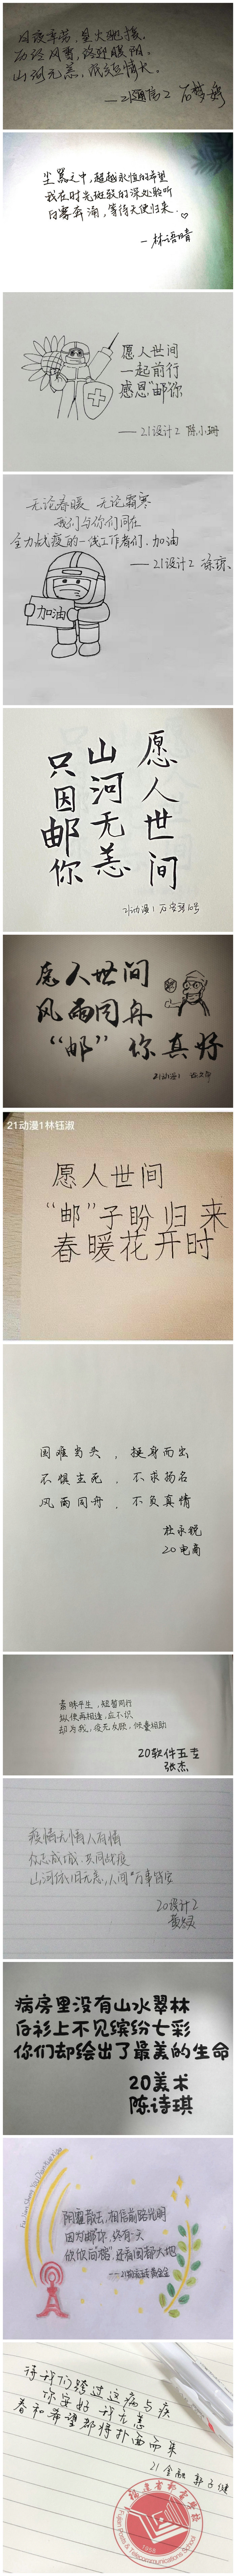 风夜辛苦，星火驰援，
历经风雪，终迎暖阳。
山河无恙，成
——21通信2 石梦
尘嚣之中，超越永恒的希望
我在时光斑驳的深处聆听
白雾奔涌，等待天使归来.
—林语晴
愿人世间
一起前行
感恩“邮”你
——21设计2 陈小珊
无论春暖 无论霜寒
我们与你们同在
全力战疫的一线工作者们，加油
——21设计2 徐
加油
愿人世间
山河无恙
只因邮你
21动漫1
愿人世间
风雨同舟
“邮”你真好
21动漫1
21动漫1林钰淑
愿人世间
“邮”子盼归来
春暖花开时
困难当头，挺身而出
不惧生死，不求扬名
风雨同舟，不负真情
杜永锐
20电商
素昧平生，短暂同行
纵使再相逢，应不识
却为我，疫无反顾，倾囊相助
20软件五专
张杰
疫情无情人有情
众志成城，共同战疫
山河依旧无恙，人间万事皆安
20设计2
病房里没有山水翠林
白衫上不见缤纷七彩
你们却绘出了最美的生命
20美术
陈诗琪
阴霾散去，相信前路光明
因为邮你，终有一天
欣欣向荣，还看国都大地
待我们跨过这病与疾
你安好 我无恙
春和希望都将扑面而来
21金融 郭子健
福建省邮电学校
Fujian Posts & Telecommunications School